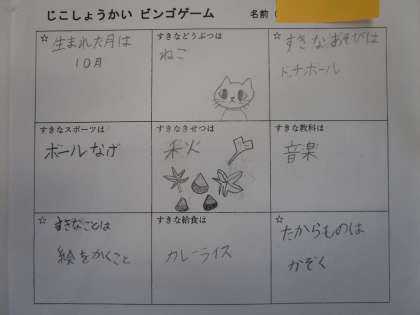 じこしょうかい ビンゴゲーム 名前(
☆生まれた月は
10月
すきなどうぶつは
ねこ
☆すきなあそびは
ドッチボール
すきなスポーツは
ボールなげ
すきなきせつは
秋
すきな教科は
音楽
☆すきなことは
絵をかくこと
すきな給食は
カレーライス
☆たからものは
かぞく